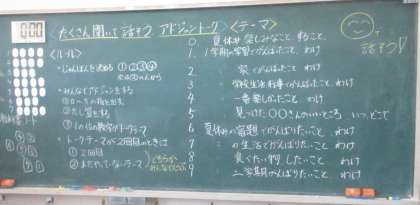 <たくさん聞いて 話そう アドジャントーク>
<テーマ>
<ルール>
・じゅんばんを決める ①②③④
・みんなでアドジャンをする
①0〜5の指を出す
②たし算をする
③1の位の数字がトークテーマ
・トークテーマが2回目のときは
① 2回目
② まだやっていないテーマ
0. 夏休み 楽しみなこと、すること。
1. 1学期の学習でがんばったこと。わけ
2. 〃 家でがんばったこと。わけ
3. 学校生活 行事でがんばったこと。わけ
4 一番楽しかったこと。わけ
5 見つけた ○○さんのいいところ いつ、どこで
6 夏休みの宿題でがんばりたいこと。わけ
7 〃 の生活でがんばりたいこと。わけ
8 食べたい物、したいこと。わけ
9 二学期がんばりたいこと。わけ
話そう!